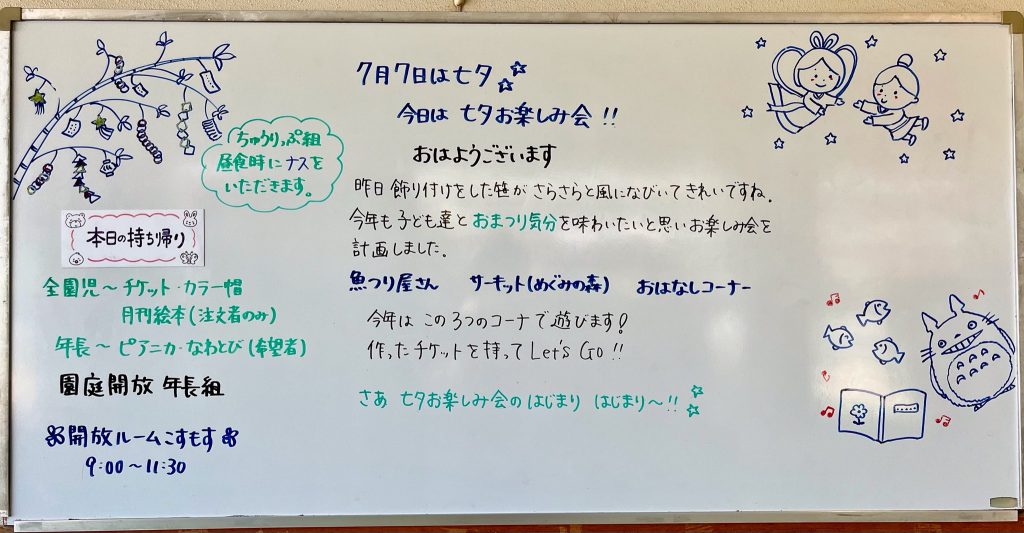 7月7日は七夕
今日は 七夕お楽しみ会 !!
おはようございます
昨日 飾り付けをした笹が さらさらと風になびいて きれいですね。
今年も 子ども達と おまつり気分を味わいたいと思いお楽しみ会を
計画しました。
魚つり屋さん サーキット(めぐみの森) おはなしコーナー
今年は この3つのコーナで遊びます!
作ったチケットを持って Let's Go !!
さあ 七夕お楽しみ会の はじまり はじまり〜!!
ちゅうりっぷ組
昼食時にナスを
いただきます。
本日の持ち帰り
全園児〜チケット・カラー帽
月刊絵本(注文者のみ)
年長〜ピアニカ・なわとび(希望者)
園庭開放 年長組
開放ルームこすもす
9:00〜11:30